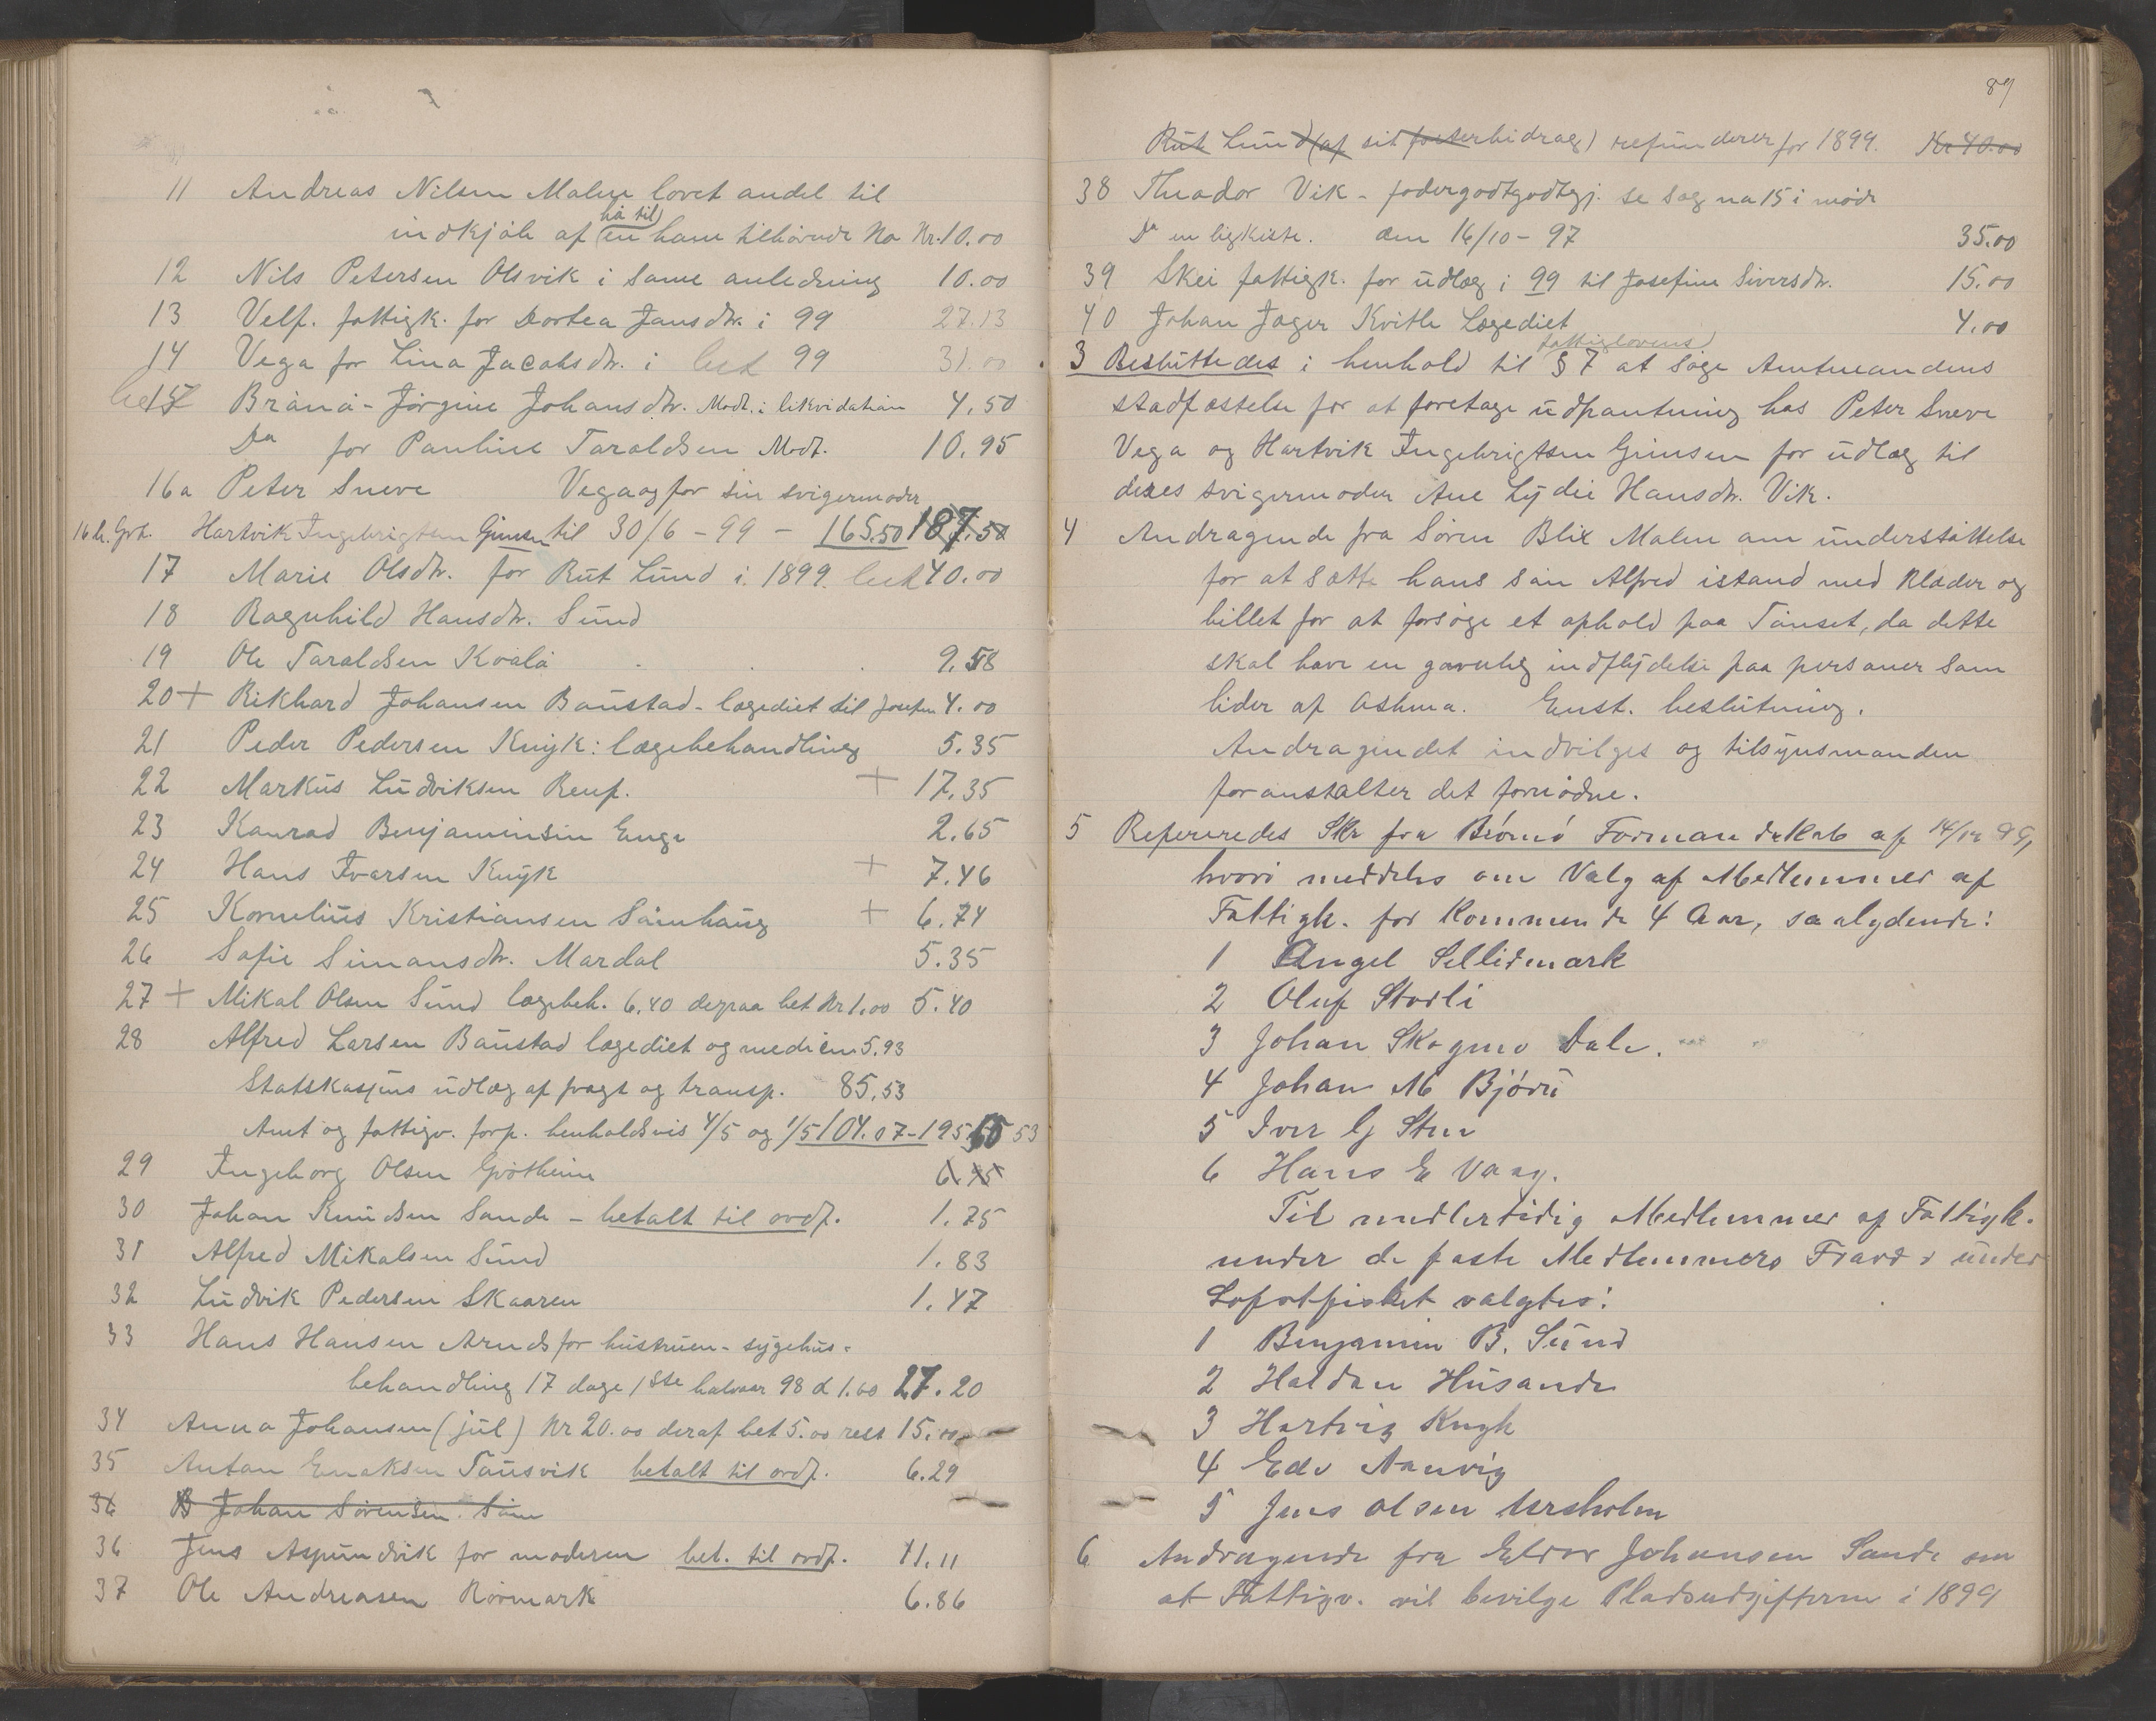 11 Andreas Nilsen Malen lovet andel til
indkjøb af en ham tilhørende No Kr. 10.00
12 Nils Petersen Olsvik i samme anledning 10.00
13 Velf. fattigk. for Dortea Jansdtr. i 99 27.13
14 Vega for Lina Jacobsdtr. i 99 31.00
15 Brönö - Jørgine Johansdtr. Modt. i likvidation 4,50
Do for Pauline Taraldsen Modt. 10,95
16a Peter Sneve Vega og for sin svigermoder
16b. Grt. Hartvik Ingebrigtsen Gimsen til 30/6 - 99 - 165.50 187.50
17 Marie Olsdtr. for Rut Lund i 1899. 40.00
18 Ragnhild Hansdtr. Sund
19 Ole Taraldsen Kvalö 9,58
20 + Rikhard Johansen Baustad - lægediet til Josefin 4.00
21 Peder Pedersen Knyk: lægebehandling 5.35
22 Markus Ludviksen Remp. + 17.35
23 Konrad Benjaminsen Enge 2.65
24 Hans Ivarsen Knyk + 7.46
25 Kornelius Kristiansen Sömhaug + 6.74
26 Sofie Simonsdtr. Mardal 5.35
27 + Mikal Olsen Sund lægebeh. 6.40 derpaa bet Kr 1.00 5.40
28 Alfred Larsen Baustad lægediet og medicin 5.93
Statskassens udlæg af fragt og transp. 85,53
Amt og fattigv. forp. henholdsvis 4/5 og 1/5 104.07 - 195
29 Ingeborg Olsen Grötheim 6.75
30 Johan Knudsen Sande - betalt til ordf. 1.75
31 Alfred Mikalsen Sund 1.83
32 Ludvik Pedersen Skaaren 1.47
33 Hans Hansen Arnds for hustruen - sygehus-
behandling 17 dage 1ste halvaar 98 á 1.60 27.20
34 Anna Johansen (jul) Kr 20.00 deraf bet 5.00 rest 15.00
35 Anton Enoksen Tausvik betalt til ordf. 6.29
36 Johan Sørensen Søm
36 Jens Aspundvik for moderen bet. til ordf. 11.11
37 Ole Andreasen Rörmark 6.86
89
Rut Lund (af sit fosterbidrag) refunderer for 1899. Kr 40.00
38 Theador Vik - fodergodtgodtgj. se sag no 15 i möde
Do en ligkiste. den 16/10 - 97 35.00
39 Skei fattigk. for udlæg i 99 til Josefine Siversdtr. 15.00
40 Johan Jager Kvitle Lægediet 4.00
fattiglovens
3 Besluttedes i henhold til § 7 at söge Amtmandens
stadfæstelse for at foretage udpantning hos Peter Sneve
Vega og Hartvik Ingebrigtsen Gimsen for udlæg til
deres svigermoder Ane Lydie Hansdtr. Vik.
4 Andragende fra Sören Blix Malen om understöttelse
for at sætte hans sön Alfred istand med klæder og
billet for at forsöge et ophold paa Tönset, da dette
skal have en gavnlig indflydelse paa personer som
lider af Asthma. Enst. beslutning.
Andragendet indvilges og tilsynsmanden
foranstalter det fornödne.
5 Refereredes Skr fra Brönö Formandskab af 14/12 99,
hvori meddeles om Valg af Medlemmer af
Fattigk. for kommende 4 Aar, saalydende:
1 Angel Sellismark
2 Oluf Storli
3 Johan Skogmo Dale.
4 Johan M Björu
5 Iver G Sten
6 Hans E Vaag.
Til midlertidig Medlemmer af Fattigk.
under de faste Medlemmers Fravær under
Lofotfisket valgtes:
1 Benjamin B. Sund
2 Haldan Husande
3 Hartvig Knyk
4 Edv Nauvig
5 Jens Olsen Ursholm
6 Andragende fra Eldor Johansen Sande om
at Fattigv. vil bevilge Pladsudgifterne i 1899